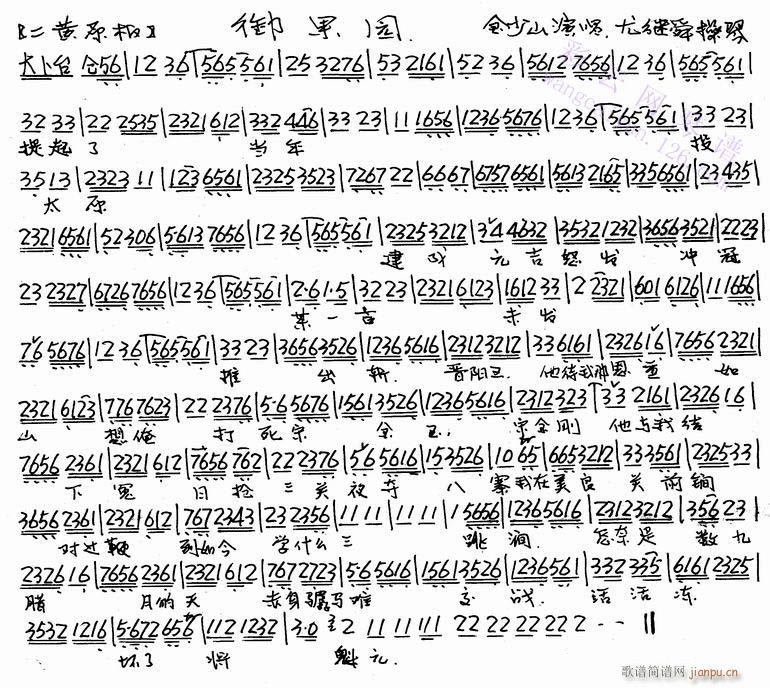 【二黄原板】 御果园 金少山演唱 尤继舜操琴
大卜台 仓56 | 12 36 | 565 561 | 25 3276 | 532161 | 5236 | 5612 7656 | 12 36 | 565 561 |
32 33 | 22 2535 | 2321 612 | 332 446 | 33 23 | 11 1656 | 1236 5676 | 12 36 | 565 561 | 33 23 |
提起了 当年 投
3513 | 2323 11 | 123 6561 | 2325 3523 | 7267 22 | 6667 | 6757 6561 | 5613 2165 | 335 6561 | 23 435 |
太原
2321 6561 | 52 306 | 5613 7656 | 12 36 | 565 561 | 2325 3212 | 34 4632 | 3532 1232 | 3656 3521 | 2223 |
建成 元吉怒发 冲冠
23 2327 | 6727 6765 | 12 36 | 565 561 | 2·6 1·5 | 32 23 | 2321 6123 | 1612 33 | 2 2321 | 601 6126 | 11 1656 |
某一言 未发
76 5676 | 12 36 | 565 561 | 33 23 | 3656 3526 | 1236 5616 | 2312 3212 | 33 6161 | 2326 16 | 7656 2321 |
推出斩 晋阳王 他待我那恩重如
2321 6123 | 776 7623 | 22 2376 | 5·6 5676 | 1561 3526 | 1236 5616 | 2312 323 | 33 2161 | 2326 16 |
山 想俺 打死宗 金玉 宋金刚 他与我结
7656 2361 | 2321 612 | 7656 762 | 22 2376 | 56 5616 | 153526 | 10 65 | 665 3212 | 333561 | 2325 33 |
下冤 日抢三关夜夺八寨我在灵官关前锏
3656 2361 | 2321 612 | 767 2343 | 23 2356 | 11 11 | 11 11 | 1 5656 | 1236 5616 | 2312 3212 | 356 23 |
对过鞭 到如今 学什么三 跳涧 怎奈是 数九
2326 16 | 7656 2361 | 2321 612 | 767 2723 | 56 5616 | 1561 3526 | 1236 561 | 332 335 | 6161 2325 |
腊 月的天 赤身骣马难 交战 活活冻
3532 1216 | 5·672 656 | 112 1232 | 3·0 2 | 11 11 11 | 22 22 22 2 - - ||
坏了 将 魁元
歌谱简谱网
jianpu.cn